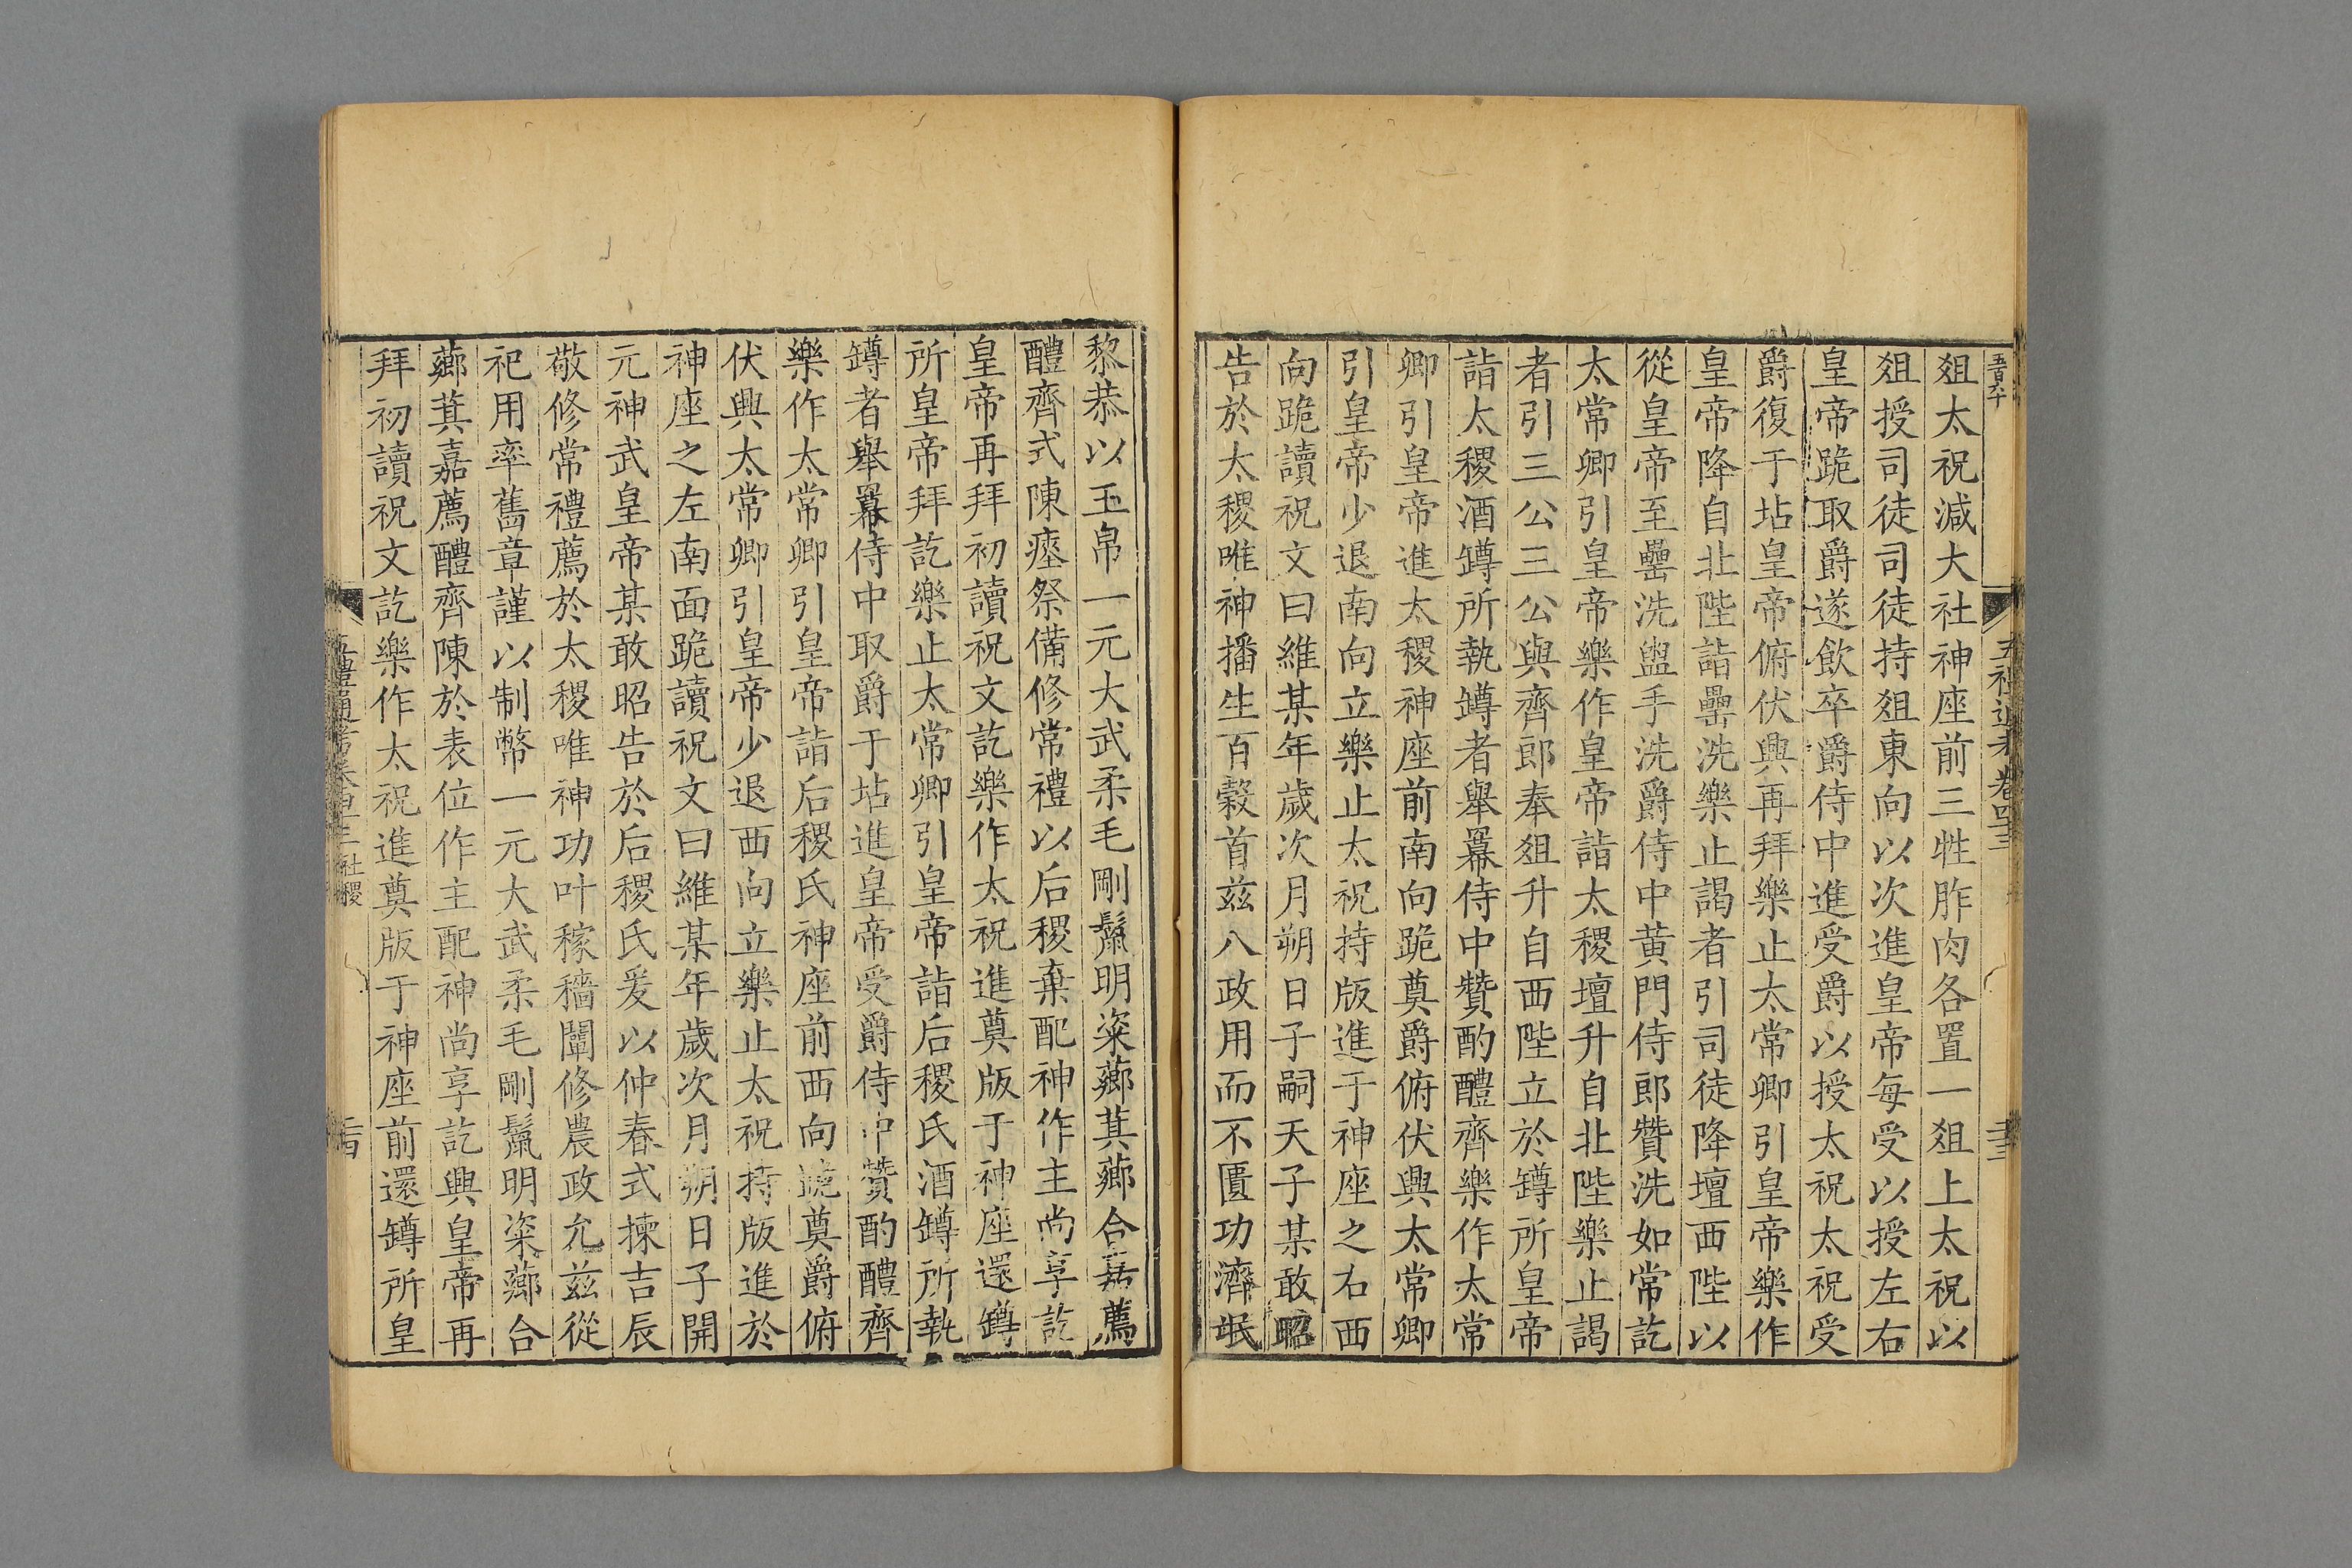 俎太祝減大社神座前三牲胙肉各置一俎上太祝以
俎授司徒司徒持俎東向以次進皇帝每受以授左右
皇帝跪取爵遂飲卒爵侍中進受爵以授太祝太祝受
爵復于坫皇帝俯伏興再拜樂止太常卿引皇帝樂作
皇帝降自北陛詣罍洗樂止謁者引司徒降壇西陛以
從皇帝至罍洗盥手洗爵侍中黃門侍郎贊洗如常訖
太常卿引皇帝樂作皇帝詣太稷壇升自北陛樂止謁
者引三公三公與齊郎奉俎升自西陛立於罇所皇帝
詣太稷酒罇所執罇者舉羃侍中贊酌醴齊樂作太常
卿引皇帝進太稷神座前南向跪奠爵俯伏興太常卿
引皇帝少退南向立樂止太祝持版進于神座之右西
向跪讀祝文曰維某年歲次月朔日子嗣天子某敢昭
告於太稷唯神播生百穀首茲八政用而不匱功濟氓
黎恭以玉帛一元大武柔毛剛鬛明粢薌萁薌合嘉薦
醴齊式陳瘞祭備修常禮以后稷棄配神作主尚享訖
皇帝再拜初讀祝文訖樂作太祝進奠版于神座還罇
所皇帝拜訖樂止太常卿引皇帝詣后稷氏酒罇所執
罇者舉羃侍中取爵于坫進皇帝受爵侍中贊酌醴齊
樂作太常卿引皇帝詣后稷氏神座前西向跪奠爵俯
伏興太常卿引皇帝少退西向立樂止太祝持版進於
神座之左南面跪讀祝文曰維某年歲次月朔日子開
元神武皇帝某敢昭告於后稷氏爰以仲春式揀吉辰
敬修常禮薦於太稷唯神功叶稼穡闡修農政允茲從
祀用率舊章謹以制幣一元大武柔毛剛鬛明粢薌合
薌萁嘉薦醴齊陳於表位作主配神尚享訖興皇帝再
拜初讀祝文訖樂作太祝進奠版于神座前還罇所皇
五禮通考卷四十三 社稷